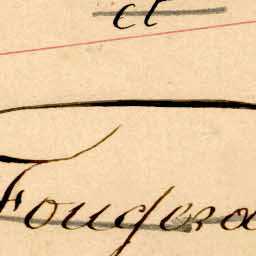 et
Fougera